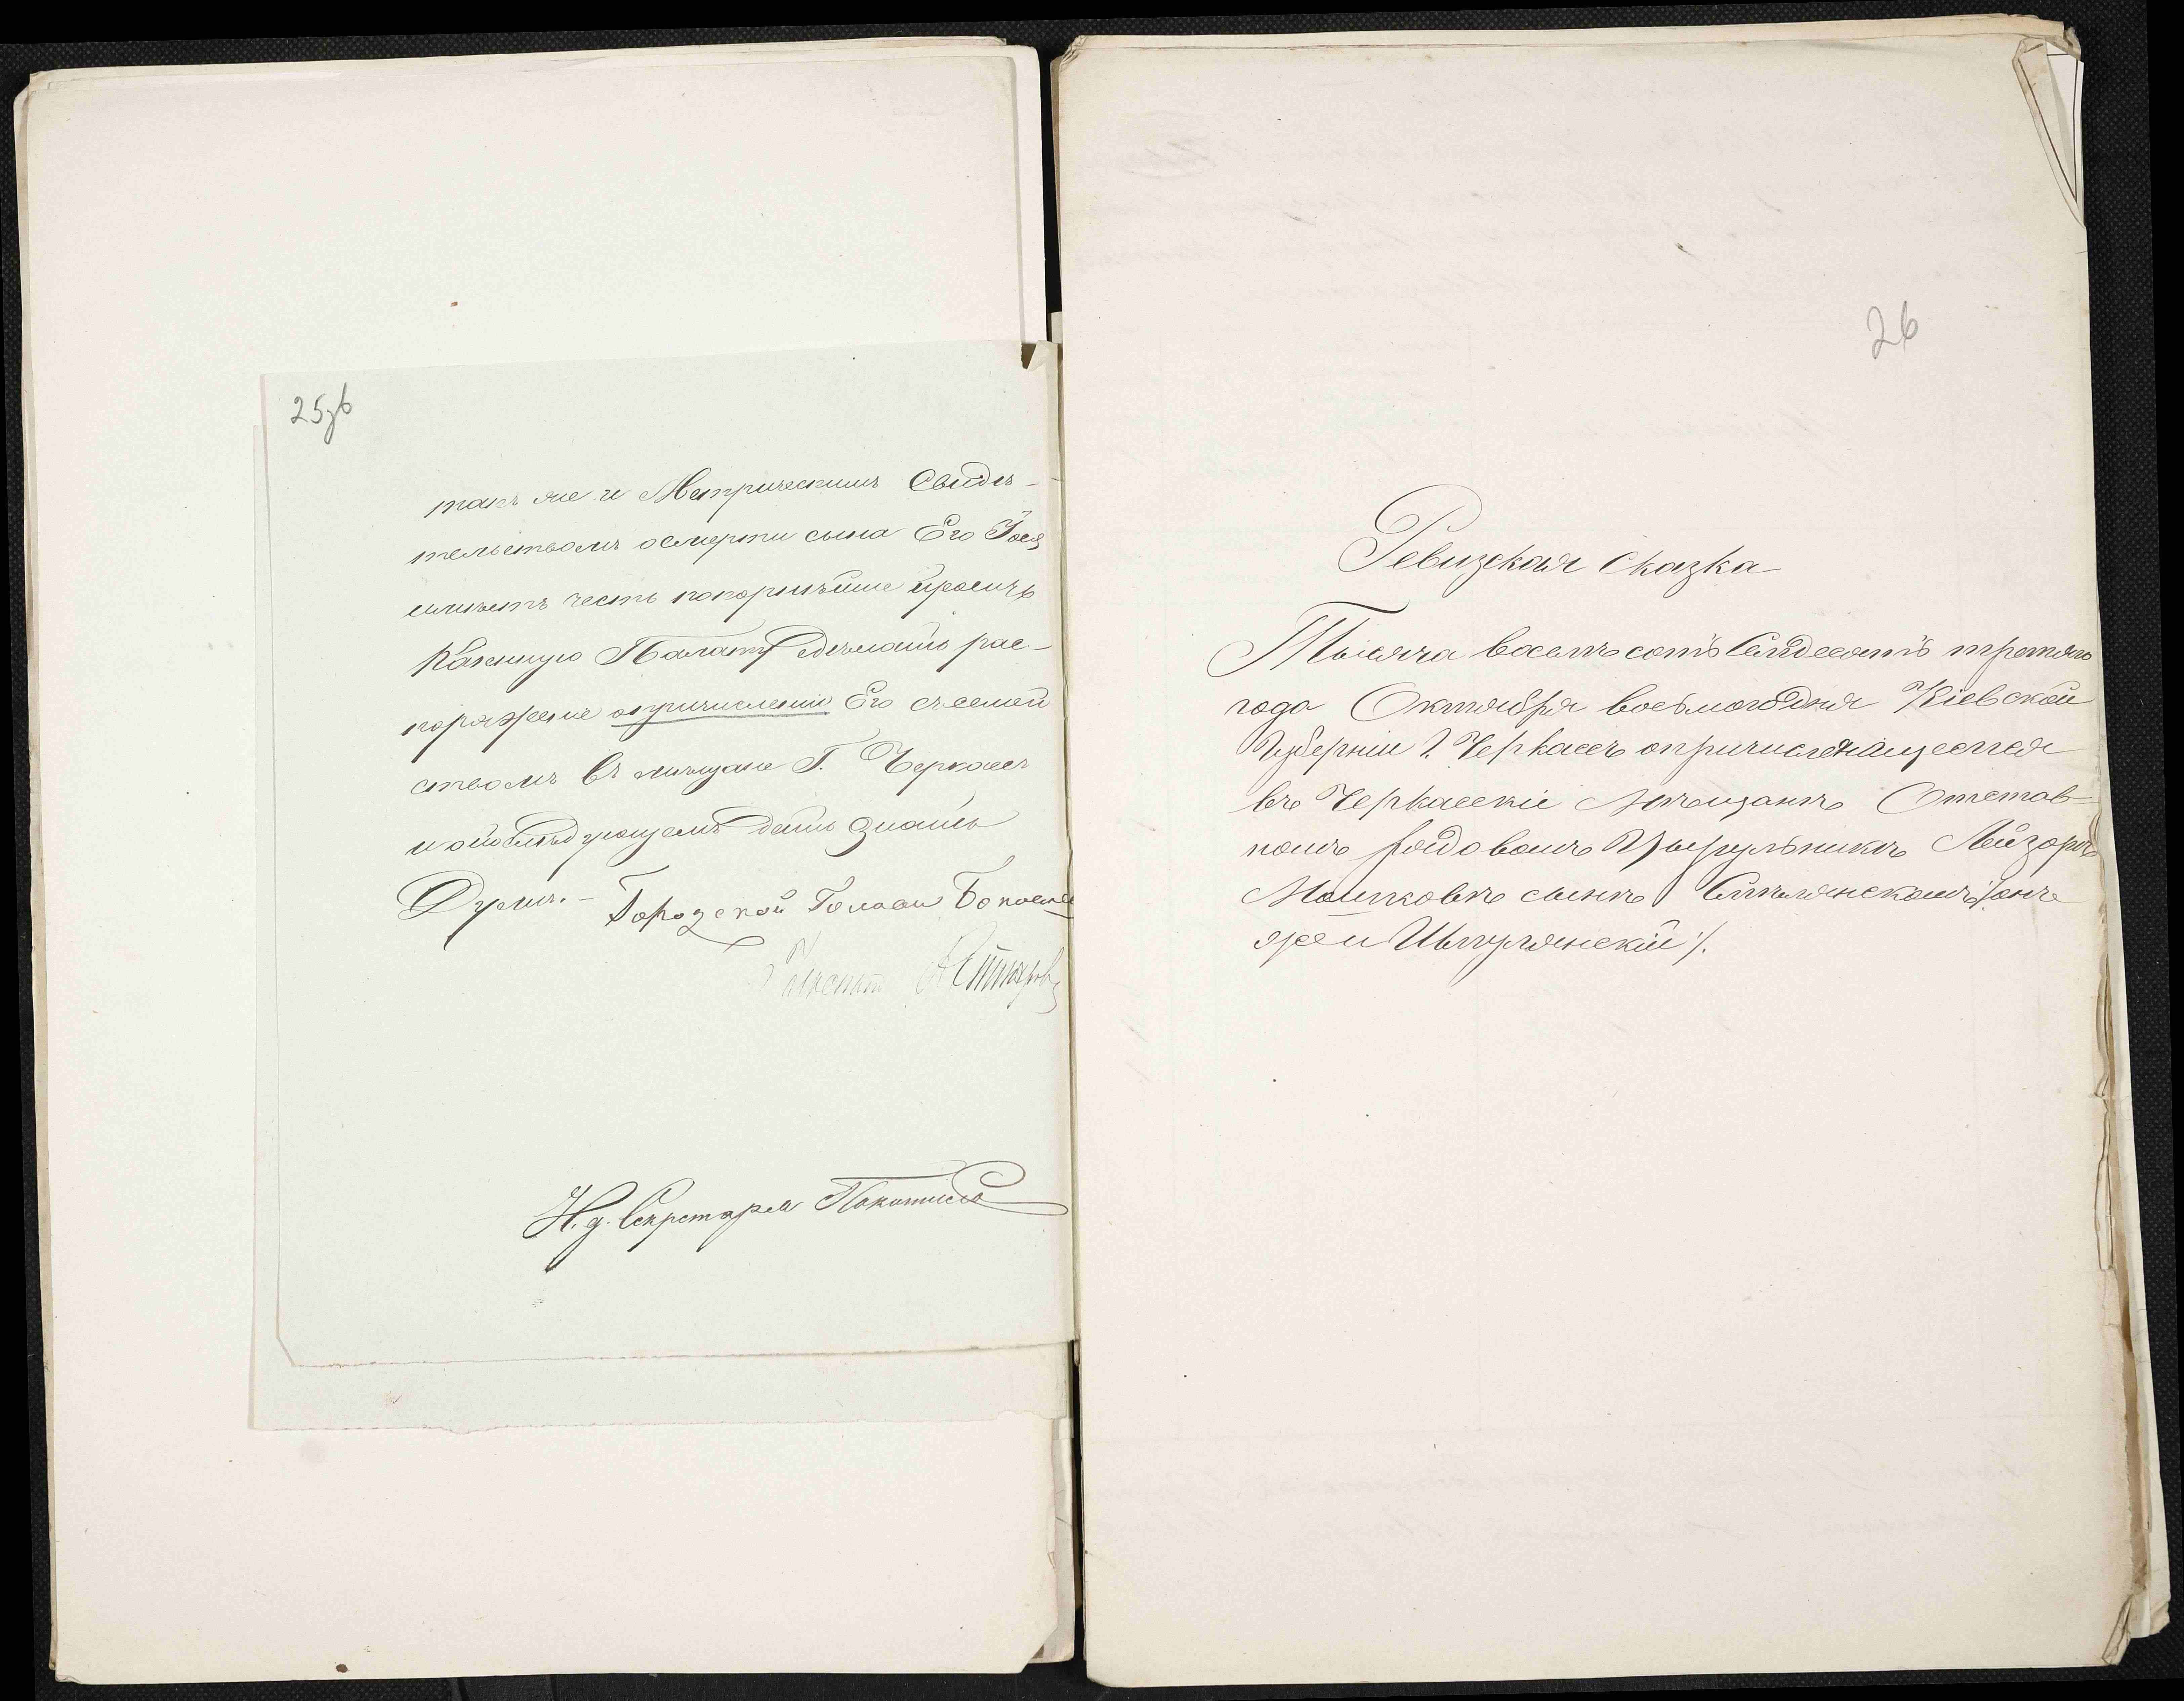 25зв
такъ же и Метрическимъ Свидѣ-
тельствомъ осмерти сына Его
имѣетъ честь покорнѣйше проситъ
Казенную Палату сдѣлать рас-
поряженіе опричисленіи Его съсемей
ствомъ въ мѣщане Г. Черкассъ
и опослѣдующемъ дать знать
Думѣ. – Городской Голова
И. д. Секретаря Покотило
26
Ревизская Сказка
Тысяча восемъсотъ Семдесятъ третяго
года Октября восьмого дня Кіевской
Губерніи Г. Черкассъ опричисляющемся
въ Черкасскіе Мѣщанѣ Отстав-
номъ рядовомъ Цырульникѣ Лейзорѣ
Мошковѣ сынѣ Смѣлянскомъ онъ
же и Шпулянскій ./.